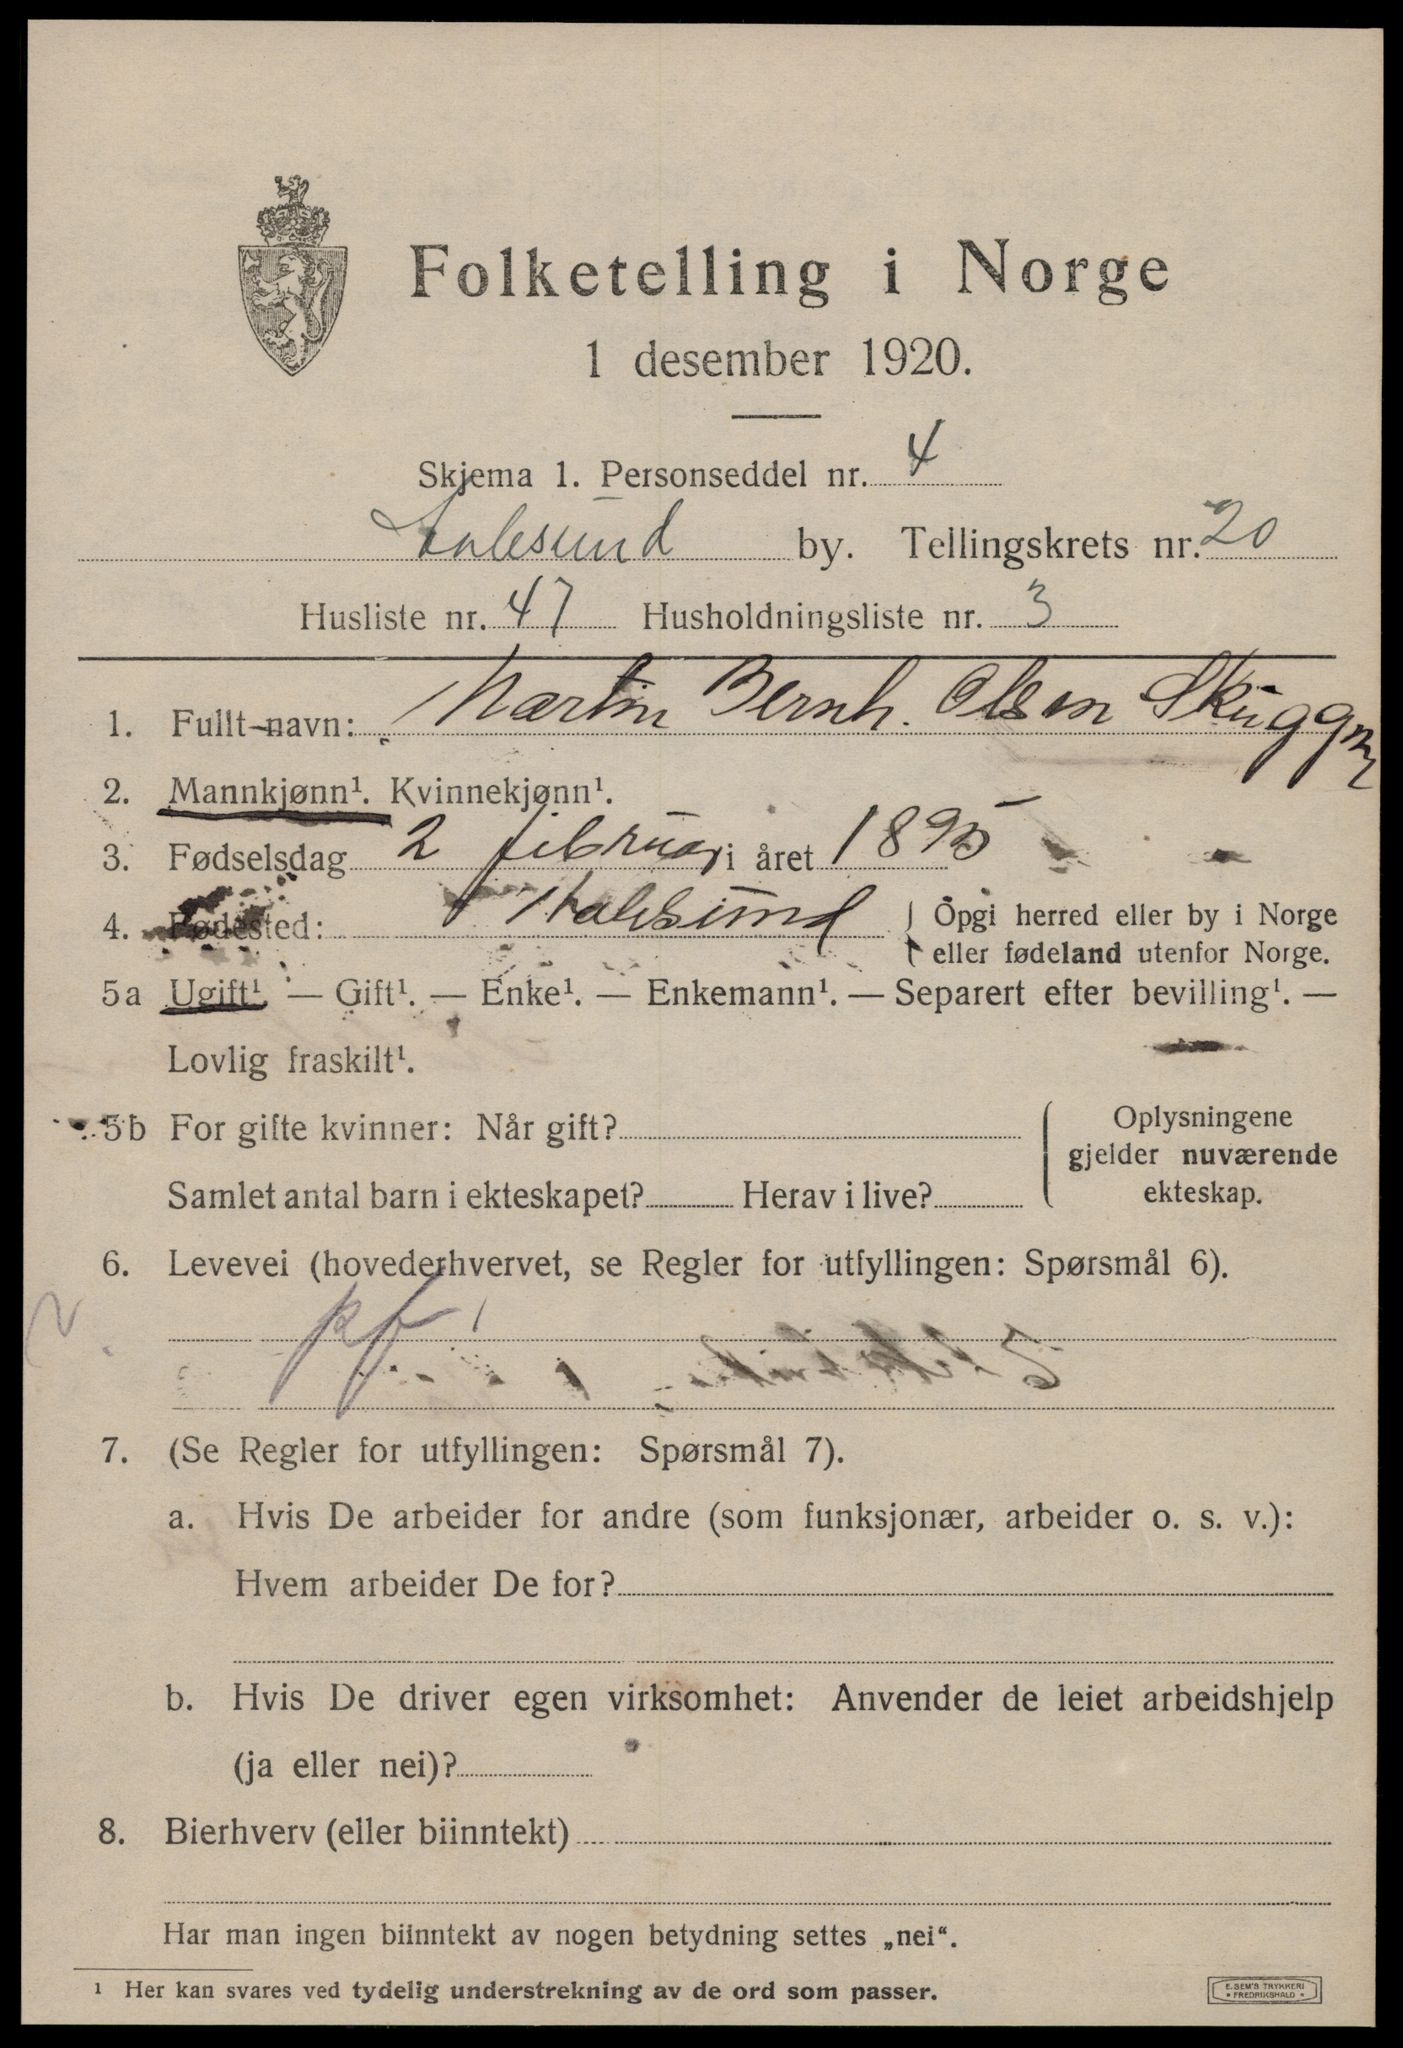 Folketelling i Norge
1 desember 1920.
Skjema 1. Personseddel nr. 4
Aalesund by. Tellingskrets nr. 20
Husliste nr. 47 Husholdningsliste nr. 3
1. Fullt navn: Martin Bernh. Olsen
2. Mannkjønn¹. Kvinnekjønn¹.
3. Fødselsdag 2 februar i året 1895
4. Fødested: Aalesund { Opgi herred eller by i Norge
eller fødeland utenfor Norge.
5a Ugift¹. — Gift¹. — Enke¹. — Enkemann¹. — Separert efter bevilling¹. —
Lovlig fraskilt¹.
5b For gifte kvinner: Når gift?
Samlet antal barn i ekteskapet? Herav i live?
Oplysningene
gjelder nuværende
ekteskap.
6. Levevei (hovederhvervet, se Regler for utfyllingen: Spørsmål 6).
pf
7. (Se Regler for utfyllingen: Spørsmål 7).
a. Hvis De arbeider for andre (som funksjonær, arbeider o. s. v.):
Hvem arbeider De for?
b. Hvis De driver egen virksomhet: Anvender de leiet arbeidshjelp
(ja eller nei)?
8. Bierhverv (eller biinntekt)
Har man ingen biinntekt av nogen betydning settes „nei“.
¹ Her kan svares ved tydelig understrekning av de ord som passer.
E. SEM'S TRYKKERI
FREDRIKSHALD